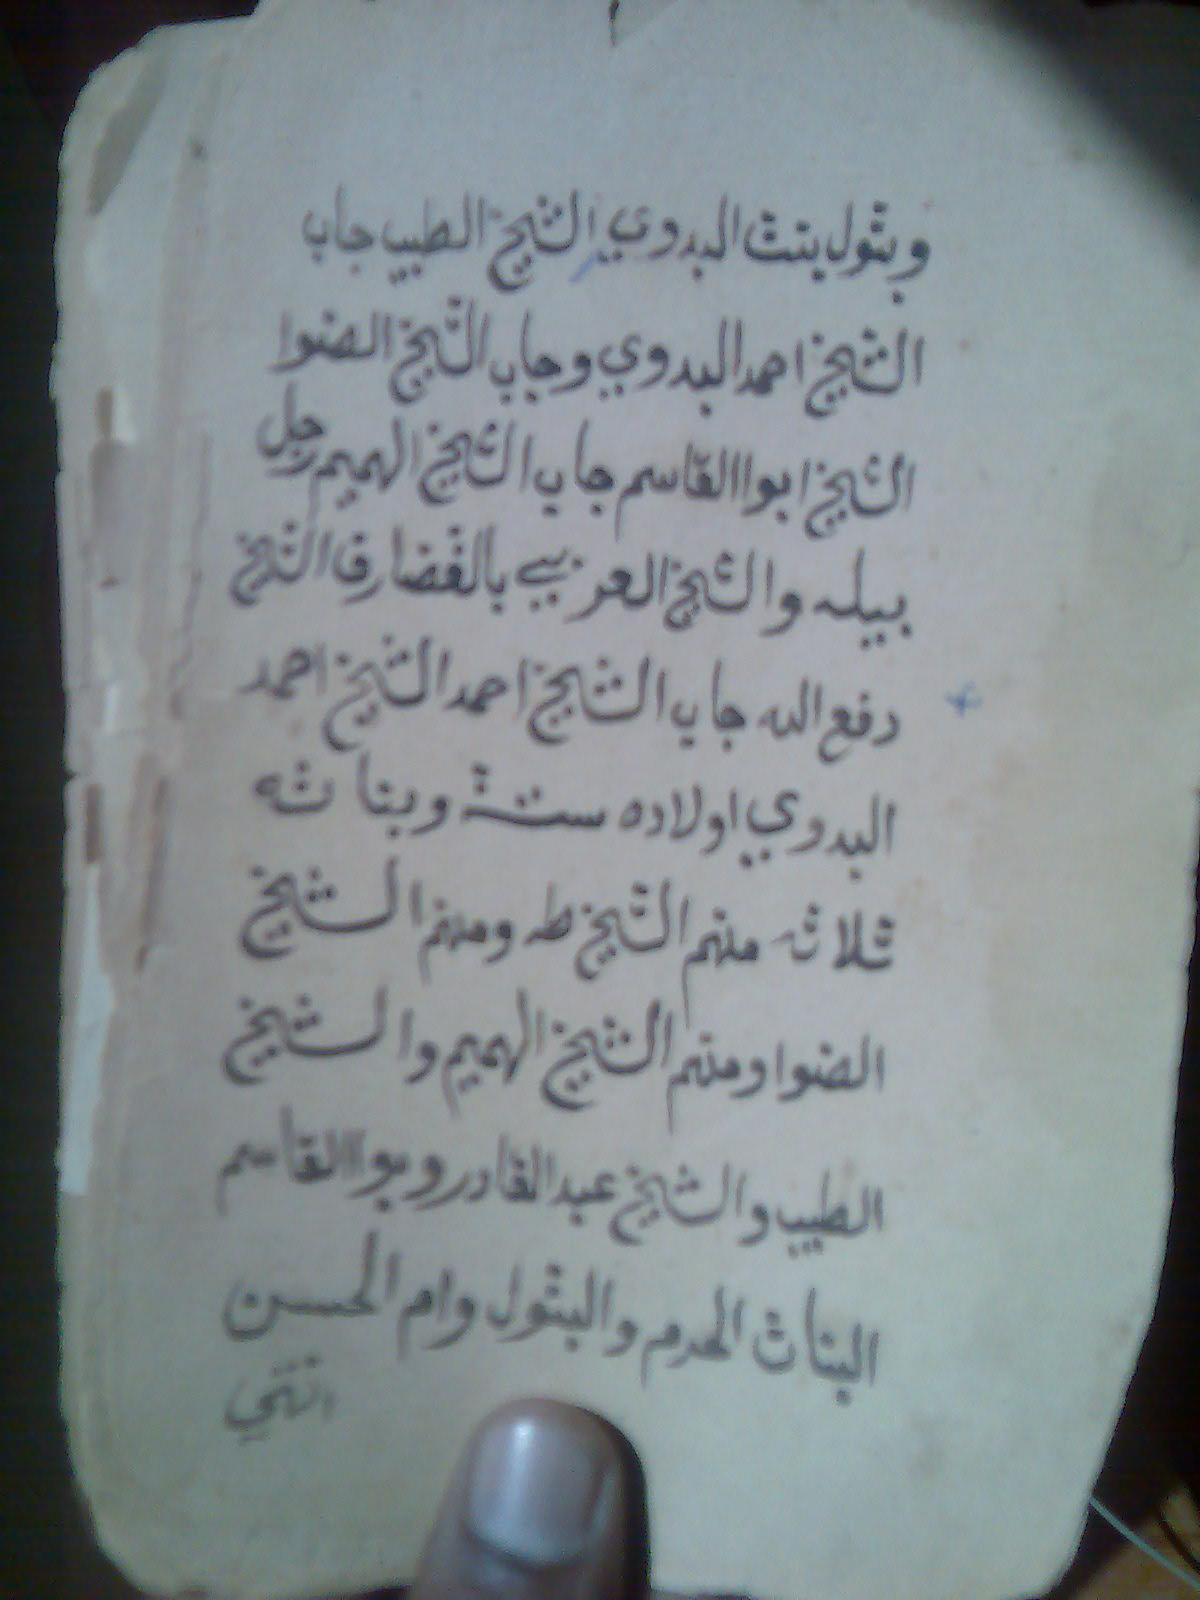 وبتول بنت البدوي الشيخ الطيب جاب
الشيخ احمد البدوي وجاب الشيخ الضوا
الشيخ ابوا القاسم جاب الشيخ الهميم رجل
بيله والشيخ العر بالقضارف الشيخ
دفع الله جاب الشيخ احمد الشيخ احمد
البدوي اولاده ستة وبناته
ثلاثه منهم الشيخ طه ومنهم الشيخ
الضوا ومنهم الشيخ الهميم والشيخ
الطيب والشيخ عبد القادر وبوا القاسم
البنات الحرم والبتول وام الحسن
انتهي